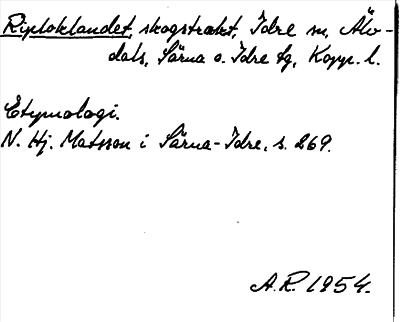 Riploklandet, skogstrakt, Idre sn, Älv-
dals, Särna o. Idre tg, Kopp. l.
Etymologi.
N. Hj. Matsson i Särna-Idre, s. 269.
A.R. 1954.